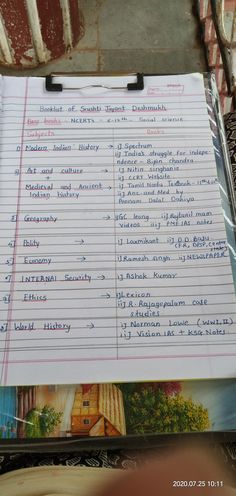 Booklist of Srushti Jayant Deshmukh
Basic books - NCERTs - 6-12th - Social science
Subjects Books
1) Modern Indian History → i) Spectrum
ii) India's struggle for Indepe-
ndence - Bipin chandra
2) Art and culture → i) Nitin singhania
+ ii) CCRT Website
Medieval and Ancient → i) Tamil Nadu Textbook - 11th
Indian history ii) Anc. and Med by
Poonam Dalal Dahiya
3) Geography → i) GC leong ii) Rajtanil mam
videos iii) PMF IAS notes
4) Polity → i) Laxmikant ii) D.D. Basu
5) Economy → i) Ramesh singh ii) NEWSPAPER
6) INTERNAl Security → i) Ashok Kumar
7) Ethics → i) Lexicon
ii) R. Rajagopalam case
studies
8) World History → i) Norman Lowe (WWI, II)
ii) Vision IAS + KSG Notes
2020.07.25 10:11